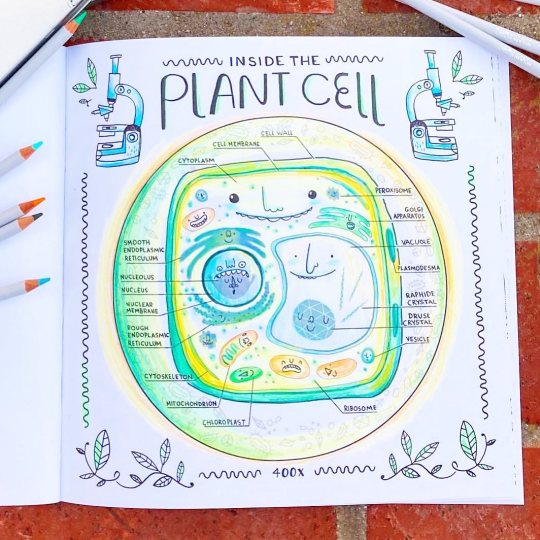 INSIDE THE
PLANT CELL
CELL WALL
CELL MEMBRANE
CYTOPLASM
PEROXISOME
GOLGI
APPARATUS
VACUOLE
PLASMODESMA
RAPHIDE
CRYSTAL
DRUSE
CRYSTAL
VESICLE
SMOOTH
ENDOPLASMIC
RETICULUM
NUCLEOLUS
NUCLEUS
NUCLEAR
MEMBRANE
ROUGH
ENDOPLASMIC
RETICULUM
CYTOSKELETON
MITOCHONDRION
CHLOROPLAST
RIBOSOME
400X